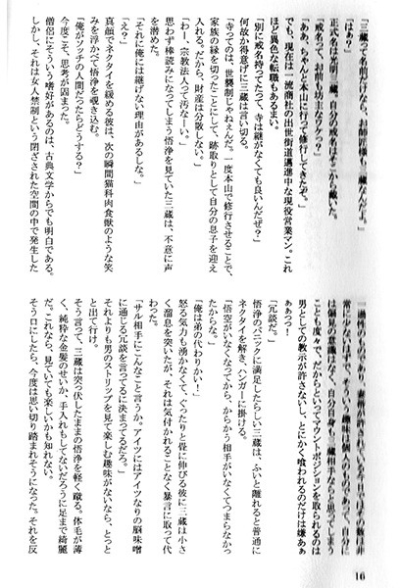 「三蔵って名前だけなら、お前罪様、三蔵なんだよ。」
「はぁ？」
正式名は光明三蔵。自分の戒名はそこから戴いた。
「戒名って、お前、坊主なワケ？」
「ああ、ちゃんと本山に行って修行してきたぞ。」
でも、現在は一流商社の出世街道邁進中な現役営業マン。これ
ほど異色な転職もあるまい。
「別に戒名持ってたって、寺は継がなくても良いんだぜ？」
何故か得意げに三蔵は言い切る。
「寺ってのは、世襲制じゃねぇんだ。一度本山で修行させることで、
家族の縁を切ったことにして、跡取りとして自分の息子を迎え
入れる。だから、財産は分散しない。」
「わー、宗教法人って汚なーい。」
思わず棒読みになってしまう悟浄を見ていた三蔵は、不意に声
を潜めた。
「それに俺には継げない理由があるしな。」
「え？」
真顔でネクタイを緩める彼は、次の瞬間猫科肉食獣のような笑
みを浮かべて悟浄を覗き込む。
「俺がソッチの人間だったらどうする？」
今度こそ、思考が固まった。
僧侶にそういう嗜好があるのは、古典文学からでも明白である。
しかし、それは女人禁制という閉ざされた空間の中で発生した
一過性のものであり、素質が許されて
常に少ないはずで、そもそも趣味は個人のものであって、自分に
は偏見の意識はなく、自分自身も三蔵相手ならと思ってしまう
ことも度々で、だからといってマウントポジションを取られるのは
男としての教示が許さないし、とにかく喰われるのだけは嫌ぁぁ
ぁぁっっ！
「冗談だ。」
悟浄のパニックに満足したらしい三蔵は、ふいと離れると普通に
ネクタイを解き、ハンガーに掛ける。
「悟空がいなくなってから、からかう相手がいなくてつまらなかっ
たからな。」
「俺は弟の代わりかい！」
怒る気力も湧かなくて、ぐったりと畳に伸びる彼に三蔵は小さ
く溜息を突いたが、それは気付かれることなく暴言に取って代
わった。
「サル相手にこんなこと言うか。アイツにはアイツなりの脳味噌
に通じる冗談を言ってるに決まってるだろ。」
それよりも男のストリップを見て楽しむ趣味がないなら、とっと
と出て行け。
そう言って、三蔵は突っ伏したままの悟浄を軽く蹴る。体毛が薄
く、純粋な金髪のせいか、手入れもしてないだろうに足まで綺麗
だ。これなら、見ていても楽しいかも知れない。
そう口にしたら、今度は思い切り踏まれそうになった。それを反
16